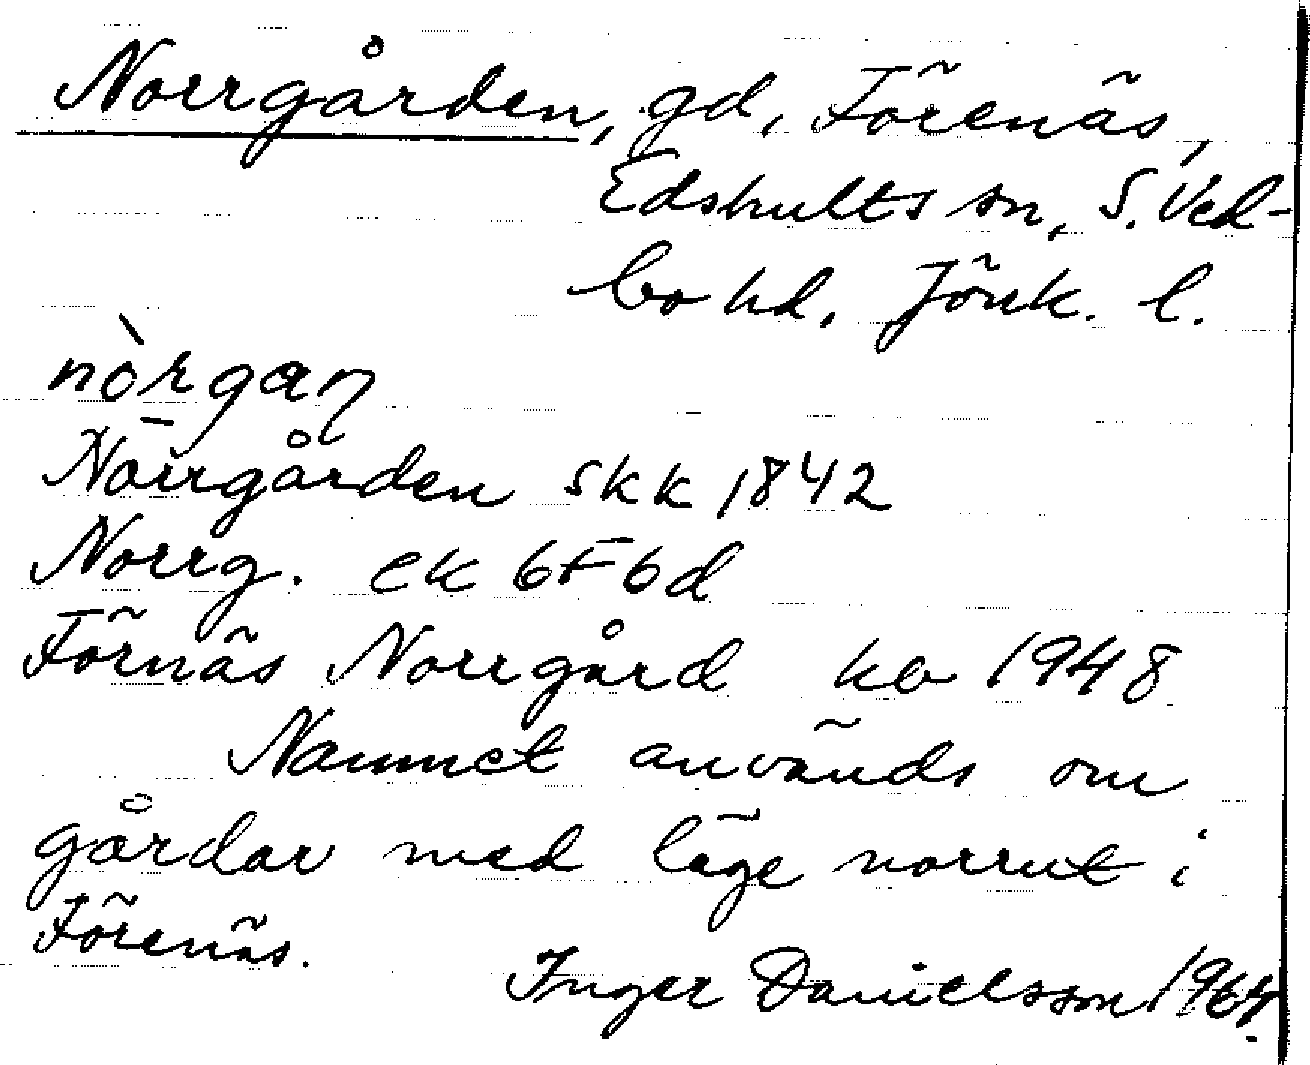 Norrgården, gd, Förenäs,
Edshults sn, S. Ved-
bo hd, Jönk. l.
nòrgaɳ
Norrgården skk 1842
Norrg. ek 6F6d
Förnäs Norrgård ko 1948
Namnet används om
gårdar med läge norrut i
Förenäs.
Inger Danielsson 1964.